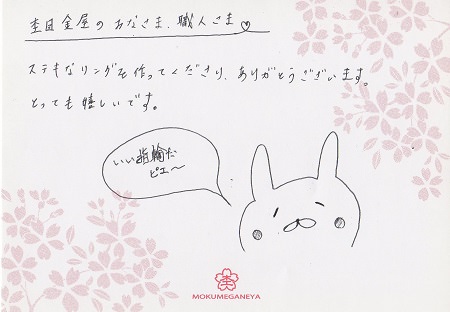 杢目金屋のみなさま、職人さま♡
ステキなリングを作ってくださり、ありがとうございます。
とっても嬉しいです。
いい指輪だ
ピエ〜
MOKUMEGANEYA